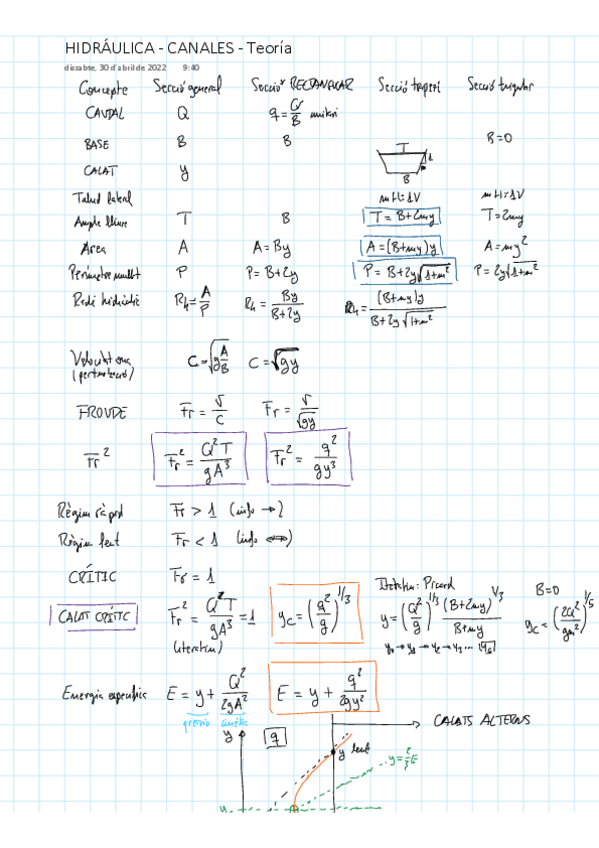 HIDRÁULICA - CANALES - Teoría
dissabte, 30 d'abril de 2022 9:40
Concepte Secció general Secció RECTANGULAR Secció trapezi Secció triangular
CAUDAL Q q = Q/B unitari
BASE B B B=0
T
B
CALAT y
Talud lateral mH:1V mH:1V
Ample lliure T B T = B+2my T=2my
Area A A = By A=(B+my)y A=my²
Perímetre mullat P P = B+2y P = B+2y√(1+m²) P = 2y√(1+m²)
Radi hidràulic Rh = A/P Rh = By/(B+2y) Rh = (B+my)y/(B+2y√(1+m²))
Velocitat ona C = √(g A/B) C = √(gy)
(pertorbació)
FROUDE Fr = v/c Fr = v/√(gy)
Fr² Fr² = Q²T/gA³ Fr² = q²/gy³
Règim ràpid Fr > 1 (info →)
Règim lent Fr < 1 (info ↔)
CRÍTIC Fr = 1
Picard B=0
CALAT CRÍTIC Fr² = Q²T/gA³ = 1 yc = (q²/g)^1/3 y = (Q²/g)^1/3 (B+2my)^1/3/(B+my) yc = (2Q²/gm²)^1/5
(iteratiu)
Energia específica E = y + Q²/2gA² E = y + q²/2gy²
CALATS ALTERNS
y q
y lent y = 2/3 E